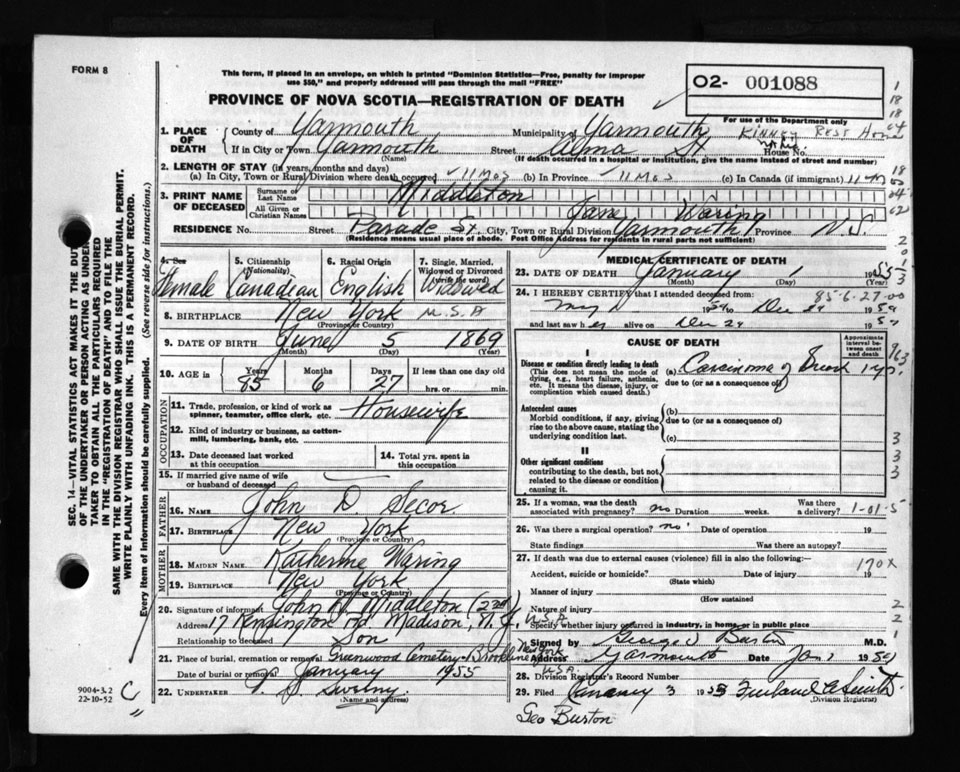 FORM 8
This form, if placed in an envelope, on which is printed "Dominion Statistics—Free, penalty for improper
use $50," and properly addressed will pass through the mail "FREE"
02- 001088
PROVINCE OF NOVA SCOTIA—REGISTRATION OF DEATH
For use of the Department only
1. PLACE OF DEATH
County of Yarmouth Municipality of Yarmouth Kinney Rest Home
If in City or Town Yarmouth Street Alma St. House No.
(Name) (If death occurred in a hospital or institution, give the name instead of street and number)
2. LENGTH OF STAY (in years, months and days)
(a) In City, Town or Rural Division where death occurred 11 Mos (b) In Province 11 Mos (c) In Canada (if immigrant) 11 m
3. PRINT NAME OF DECEASED
Surname or Last Name Middleton
All Given or Christian Names Jane Waring
RESIDENCE No. Street Parade St. City, Town or Rural Division Yarmouth Province N.S.
(Residence means usual place of abode. Post Office Address for residents in rural parts not sufficient)
4. Sex 5. Citizenship (Nationality) 6. Racial Origin 7. Single, Married, Widowed or Divorced (write the word)
Female Canadian English Widowed
8. BIRTHPLACE New York U.S.A
(Province or Country)
9. DATE OF BIRTH June 5 1869
(Month) (Day) (Year)
10. AGE is Years Months Days If less than one day
85 6 27 hrs. or min.
OCCUPATION
11. Trade, profession, or kind of work as spinner, teamster, office clerk, etc. Housewife
12. Kind of industry or business, as cotton-mill, lumbering, bank, etc.
13. Date deceased last worked at this occupation
14. Total yrs. spent in this occupation
15. If married give name of wife or husband of deceased
FATHER
16. NAME John D. Secor
17. BIRTHPLACE New York
(Province or Country)
MOTHER
18. MAIDEN NAME Katherine Waring
19. BIRTHPLACE New York
(Province or Country)
20. Signature of informant John N. Middleton (2nd)
Address 17 Kensington Rd. Madison, N.J. U.S.A
Relationship to deceased Son
21. Place of burial, cremation or removal Greenwood Cemetery- New York U.S.A.
Date of burial or removal January 1955
22. UNDERTAKER Sweeny
(Name and address)
MEDICAL CERTIFICATE OF DEATH
23. DATE OF DEATH January 1 1955
(Month) (Day) (Year)
85-6-27-00
24. I HEREBY CERTIFY that I attended deceased from
May 1954 to Dec 29 1954
and last saw her alive on Dec 29 1954
CAUSE OF DEATH
Approximate interval between onset and death
I
Disease or condition directly leading to death
(This does not mean the mode of dying, e.g., heart failure, asthenia, etc. It means the disease, injury, or complication which caused death.)
(a) Carcinoma of Breast 1 yr.
due to (or as a consequence of)
Antecedent causes
Morbid conditions, if any, giving rise to the above cause, stating the underlying condition last.
(b)
due to (or as a consequence of)
(c)
II
Other significant conditions
contributing to the death, but not related to the disease or condition causing it.
25. If a woman, was the death associated with pregnancy? no Duration weeks. Was there a delivery? 1-01-5
26. Was there a surgical operation? no Date of operation 19
State findings Was there an autopsy?
27. If death was due to external causes (violence) fill in also the following:
170X
Accident, suicide or homicide? Date of injury 19
(State which)
Manner of injury
(How sustained
Nature of injury
Specify whether injury occurred in industry, in home or in public place
Signed by George Burton M.D.
Address Yarmouth Date Jan 1 19
28. Division Registrar's Record Number
29. Filed January 3 1955
(Division Registrar)
Geo Burton
SEC. 14—VITAL STATISTICS ACT MAKES IT THE DUTY
OF THE UNDERTAKER OR PERSON ACTING AS UNDER-
TAKER TO OBTAIN ALL THE PARTICULARS REQUIRED
IN THE "REGISTRATION OF DEATH" AND TO FILE THE
SAME WITH THE DIVISION REGISTRAR WHO SHALL ISSUE THE BURIAL PERMIT.
WRITE PLAINLY WITH UNFADING INK. THIS IS A PERMANENT RECORD.
Every item of information should be carefully supplied. (See reverse side for instructions.)
9004-3.2
22-10-52
C